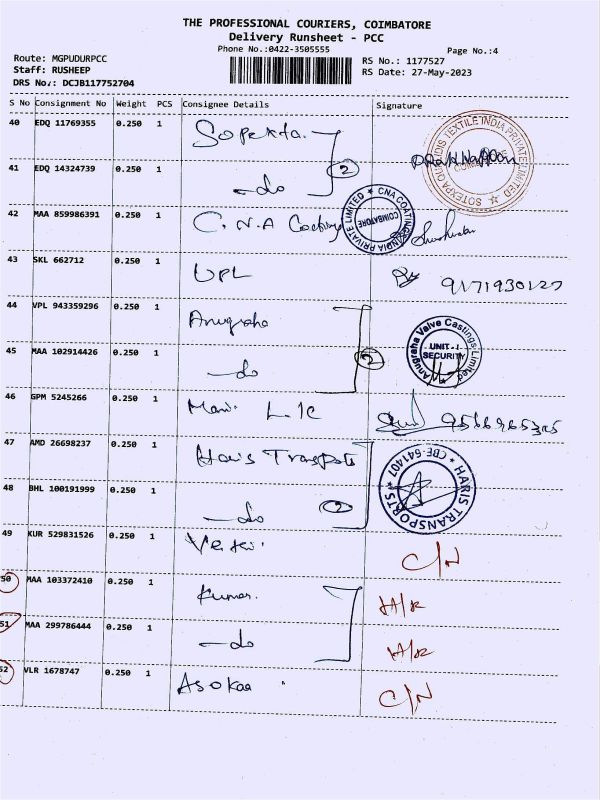 THE PROFESSIONAL COURIERS, COIMBATORE
Delivery Runsheet - PCC
Phone No.:0422-3505555
Page No.:4
Route: MGPUDURPCC
Staff: RUSHEEP
DRS No.: DCJB117752704
RS No.: 1177527
RS Date: 27-May-2023
S No Consignment No Weight PCS Consignee Details Signature
40 EDQ 11769355 0.250 1 Sopexta.
41 EDQ 14324739 0.250 1 -do 2
SOTEXPA QUALIDIS TEXTILE INDIA PRIVATE LIMITED
42 MAA 859986391 0.250 1 C.N.A Coating
CNA COATINGS INDIA PRIVATE LIMITED COIMBATORE
43 SKL 662712 0.250 1 UPL
44 VPL 943359296 0.250 1 Anugraha
45 MAA 102914426 0.250 1 -do 2
Anugraha Valve Castings Limited UNIT-I SECURITY
46 GPM 5245266 0.250 1 Mani. LIC
47 AMD 26698237 0.250 1 Haris Transpots
48 BHL 100191999 0.250 1 -do 2
HARIS TRANSPORTS CBE-641407
49 KUR 529831526 0.250 1 C/N
50 MAA 103372410 0.250 1 Kumar. H/R
51 MAA 299786444 0.250 1 -do H/R
52 VLR 1678747 0.250 1 Asokaa . C/N